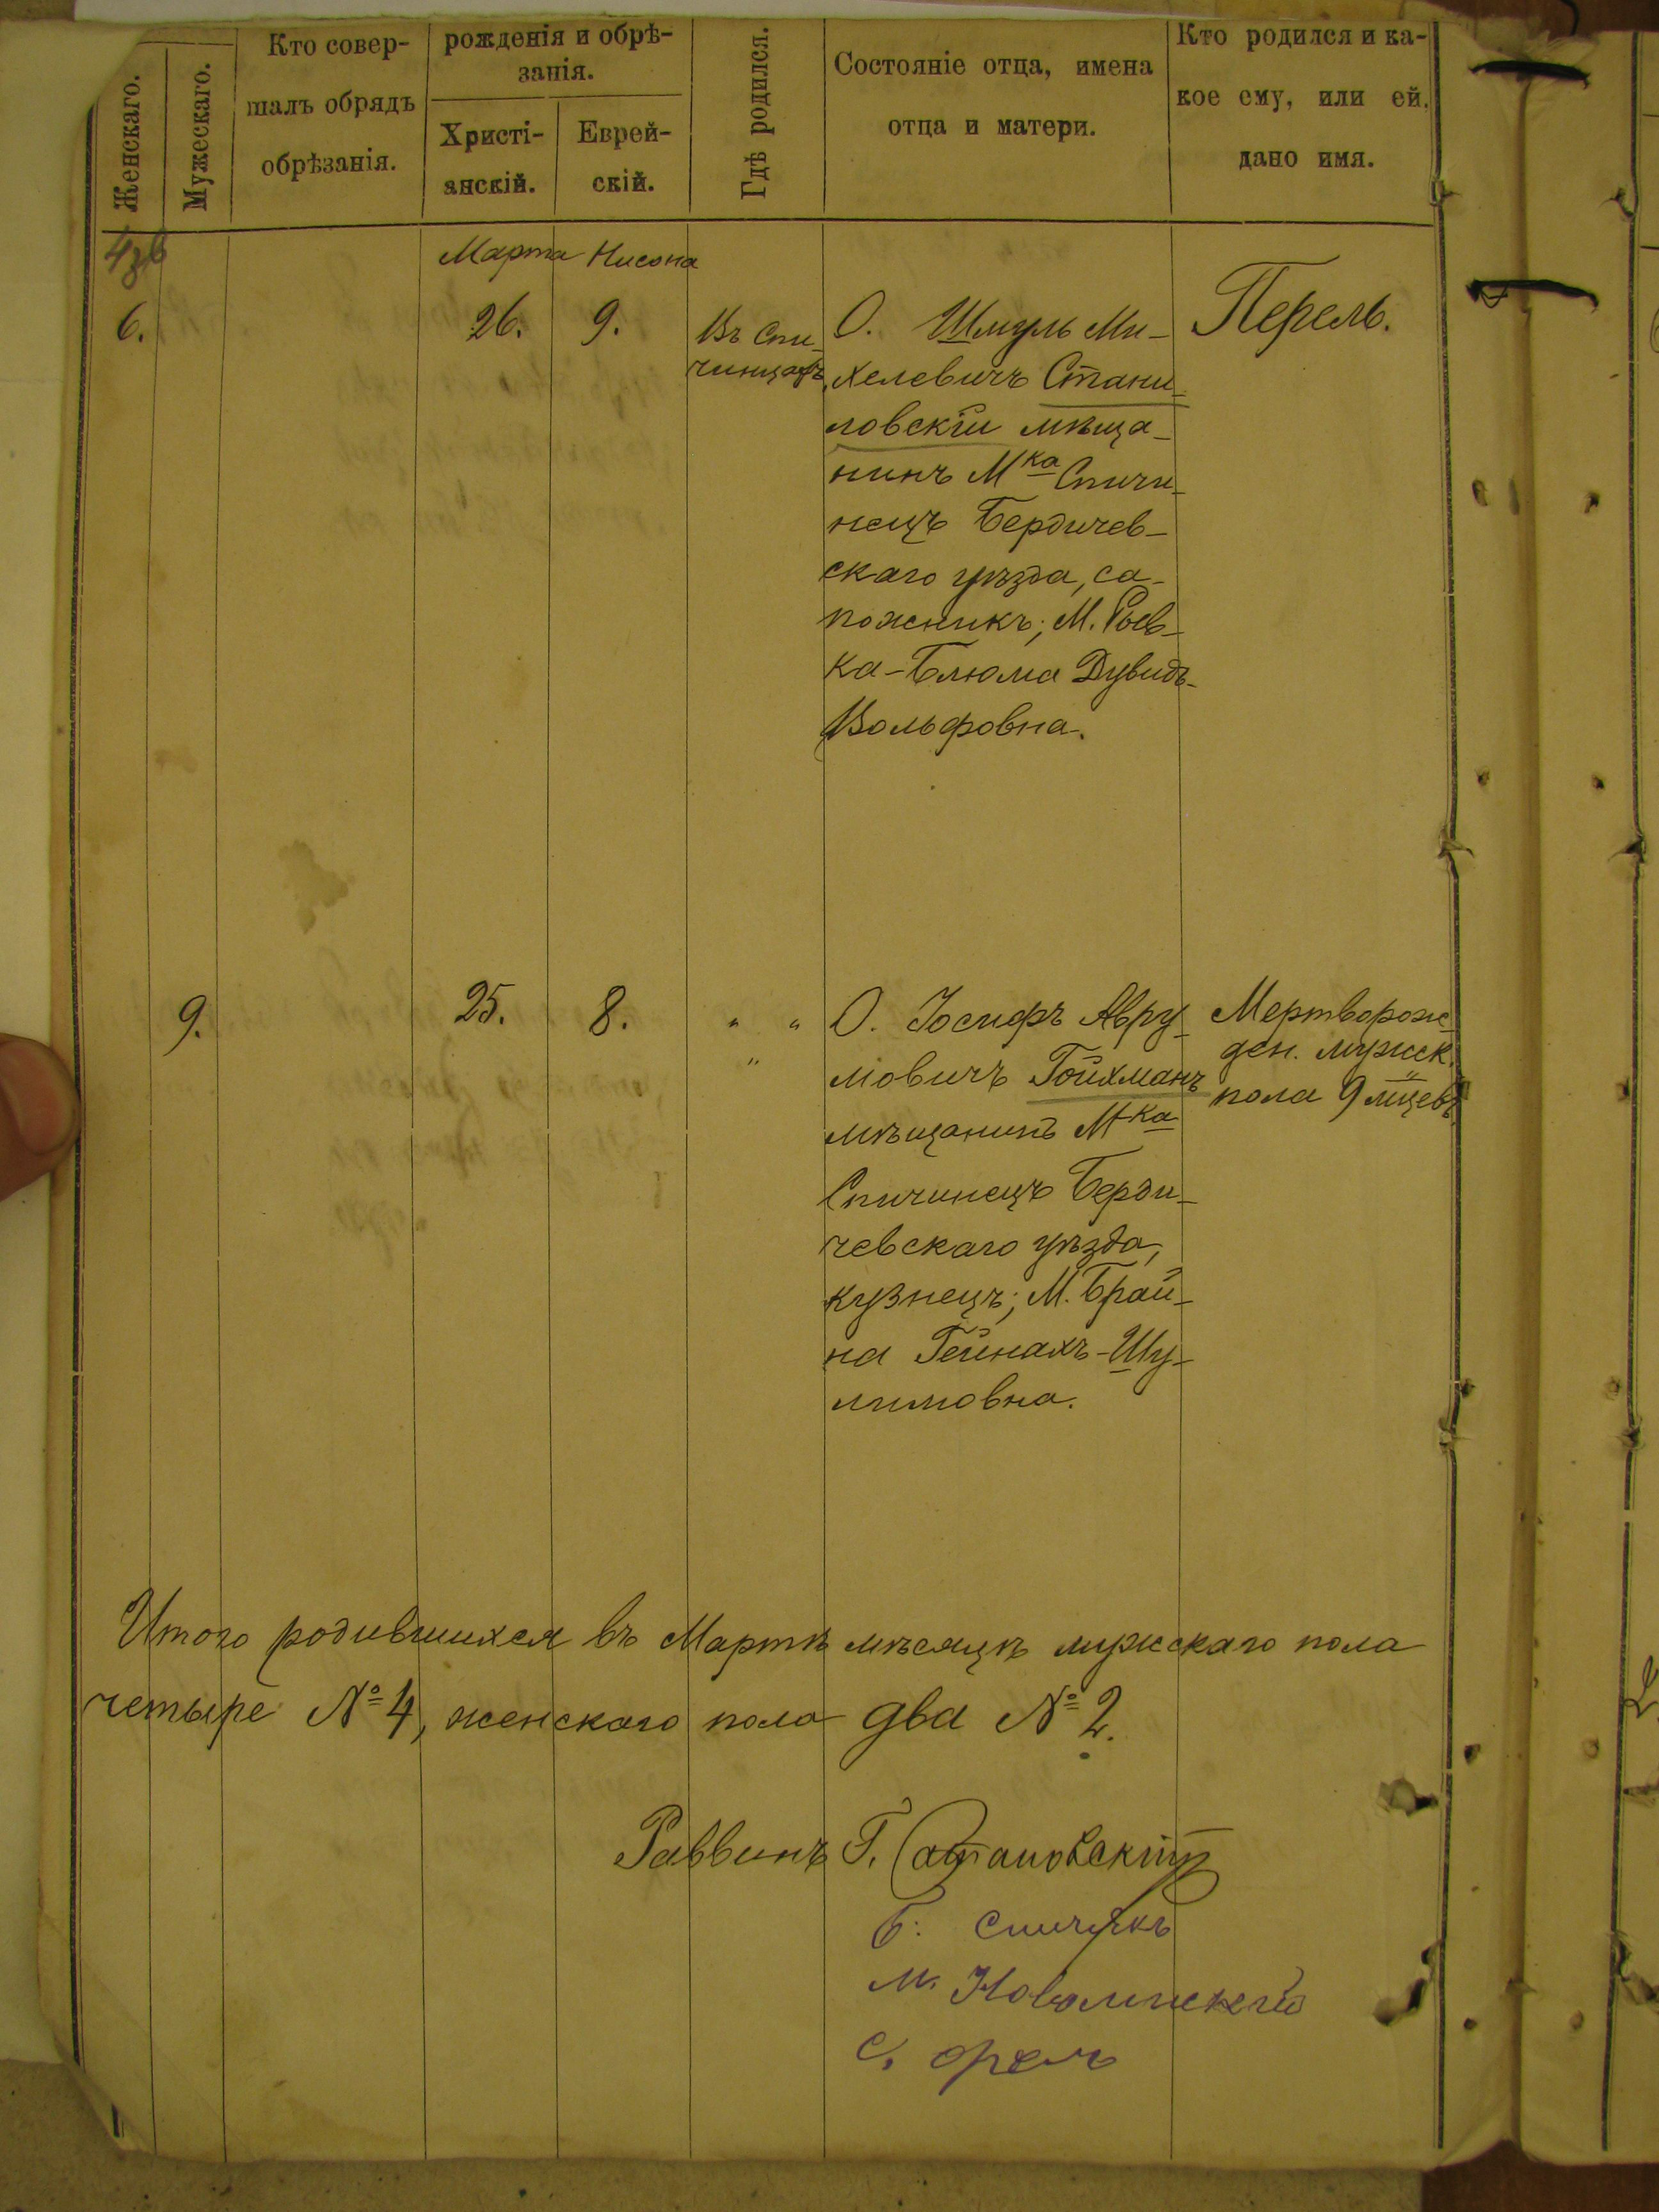 Женскаго.
Мужескаго.
Кто совер-
шалъ обрядъ
обрѣзанія.
рожденія и обрѣ-
занія.
Христі-
анскій.
Еврей-
скій.
Гдѣ родился.
Состояніе отца, имена
отца и матери.
Кто родился и ка-
кое ему, или ей,
дано имя.
Марта Нисона
6. 26. 9.
Въ Спи-
чинцахъ
О. Шмуль Ми-
хелевичъ Стани-
ловскій мѣща-
нинъ Мка Спичи-
нецъ Бердичев-
скаго уѣзда, са-
пожникъ; М. Рив-
ка-Блюма Дувидъ-
Вольфовна.
Перель.
9. 25. 8. " "
"
О. Іосифъ Авру-
мовичъ Гойхманъ
мѣщанинъ Мка
Спичинецъ Берди-
чевскаго уѣзда,
кузнецъ; М. Брай-
на Гейнахъ-Шу-
лимовна.
Мертворож-
ден. мужск.
пола 9 мцевъ
Итого родившихся въ Мартѣ мѣсяцѣ мужскаго пола
четыре № 4, женскаго пола два № 2.
Раввинъ Г.
Б. Спичакъ
М.
С. орелъ